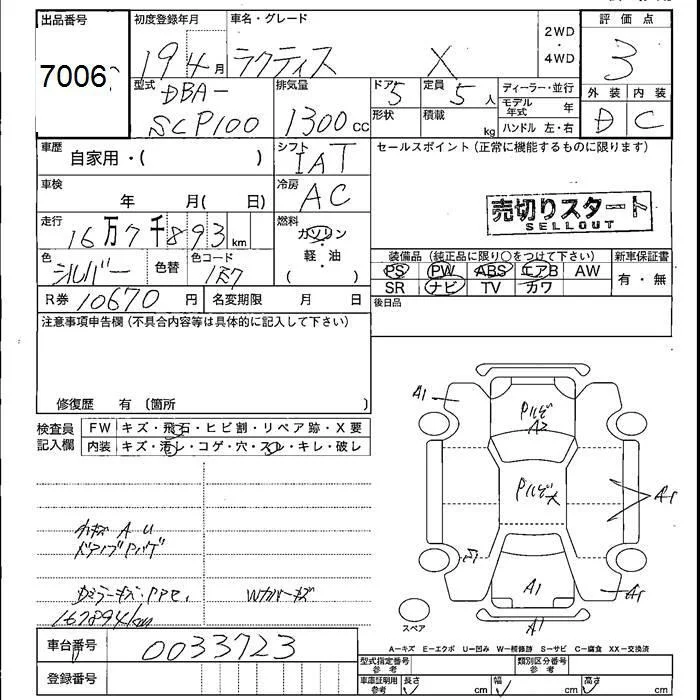 出品番号 初度登録年月 車名・グレード 2WD・4WD 評価点
7006
19 4月 ラクティス X 3
型式 排気量 ドア 定員 ディーラー・並行 外装 内装
DBA-
SCP100 1300cc 5 5人 D C
形状 積載 kg モデル年式 年
ハンドル 左・右
車歴 シフト セールスポイント(正常に機能するものに限ります)
自家用・( ) IAT
車検 冷房
年 月( 日) AC
売切りスタート
SELLOUT
走行 燃料
16万7千893km ガソリン・軽油
( )
色 色替 色コード 装備品(純正品に限り○をつけて下さい) 新車保証書
シルバー 1F7 PS PW ABS エアB AW 有・無
SR ナビ TV カワ
R券 10670円 名変期限 月 日 後日品
注意事項申告欄(不具合内容等は具体的に記入して下さい)
修復歴 有 (箇所 )
検査員記入欄 FW キズ・飛石・ヒビ割・リペア跡・X要
内装 キズ・汚レ・コゲ・穴・スレ・キレ・破レ
A1
Pハゲ
A2
Pハゲ大
A1
A1
A1
A1
小キズ A U
ドアノブPハゲ
Dミラーキズ・PPセ. Wカバーキズ
167894km
スペア
A-キズ E-エクボ U-凹み W-補修跡 S-サビ C-腐食 XX-交換済
車台番号 0033723
登録番号
型式指定番号 参考 類別区分番号 参考
車庫証明用 参考 長さ cm 幅 cm 高さ cm